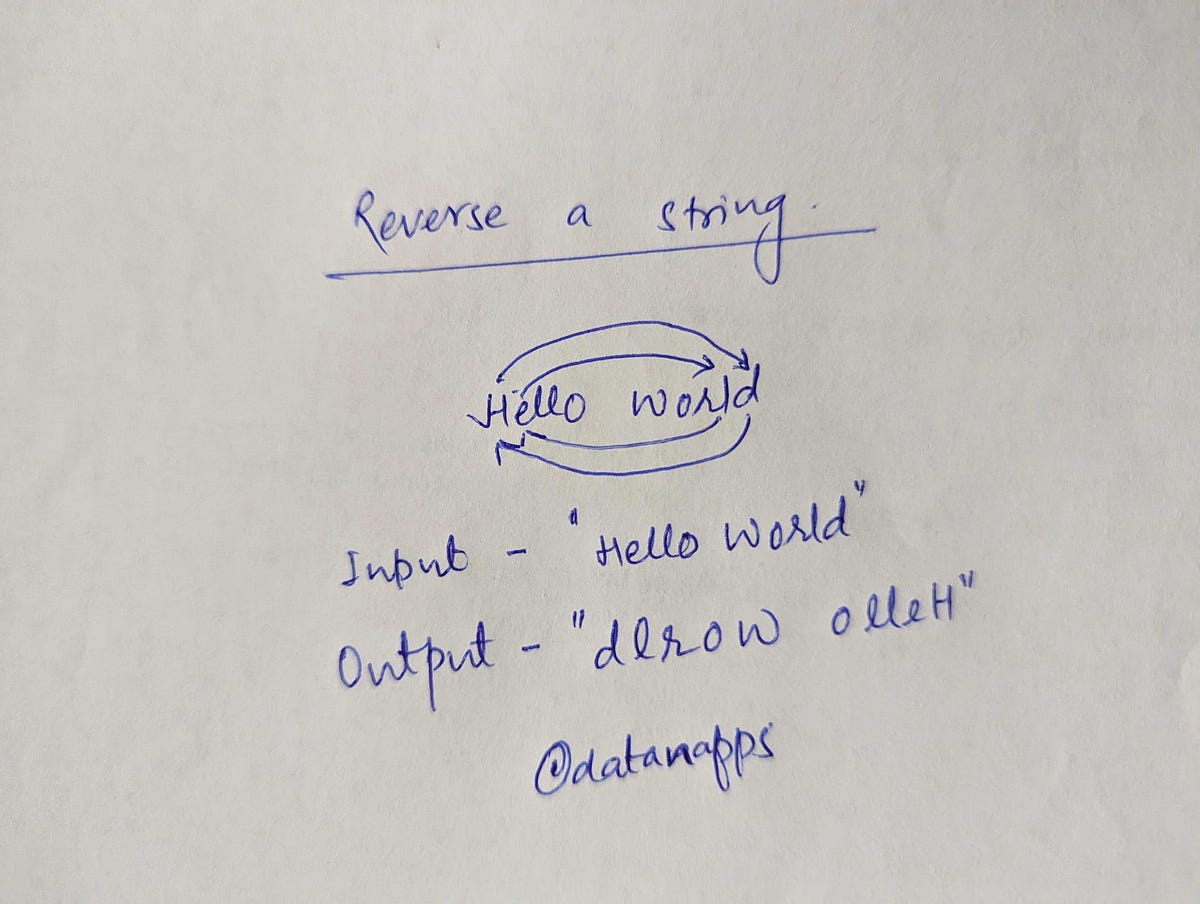 Reverse a string.
Hello world
Input - "Hello world"
Output - "dlrow olleH"
@datanapps